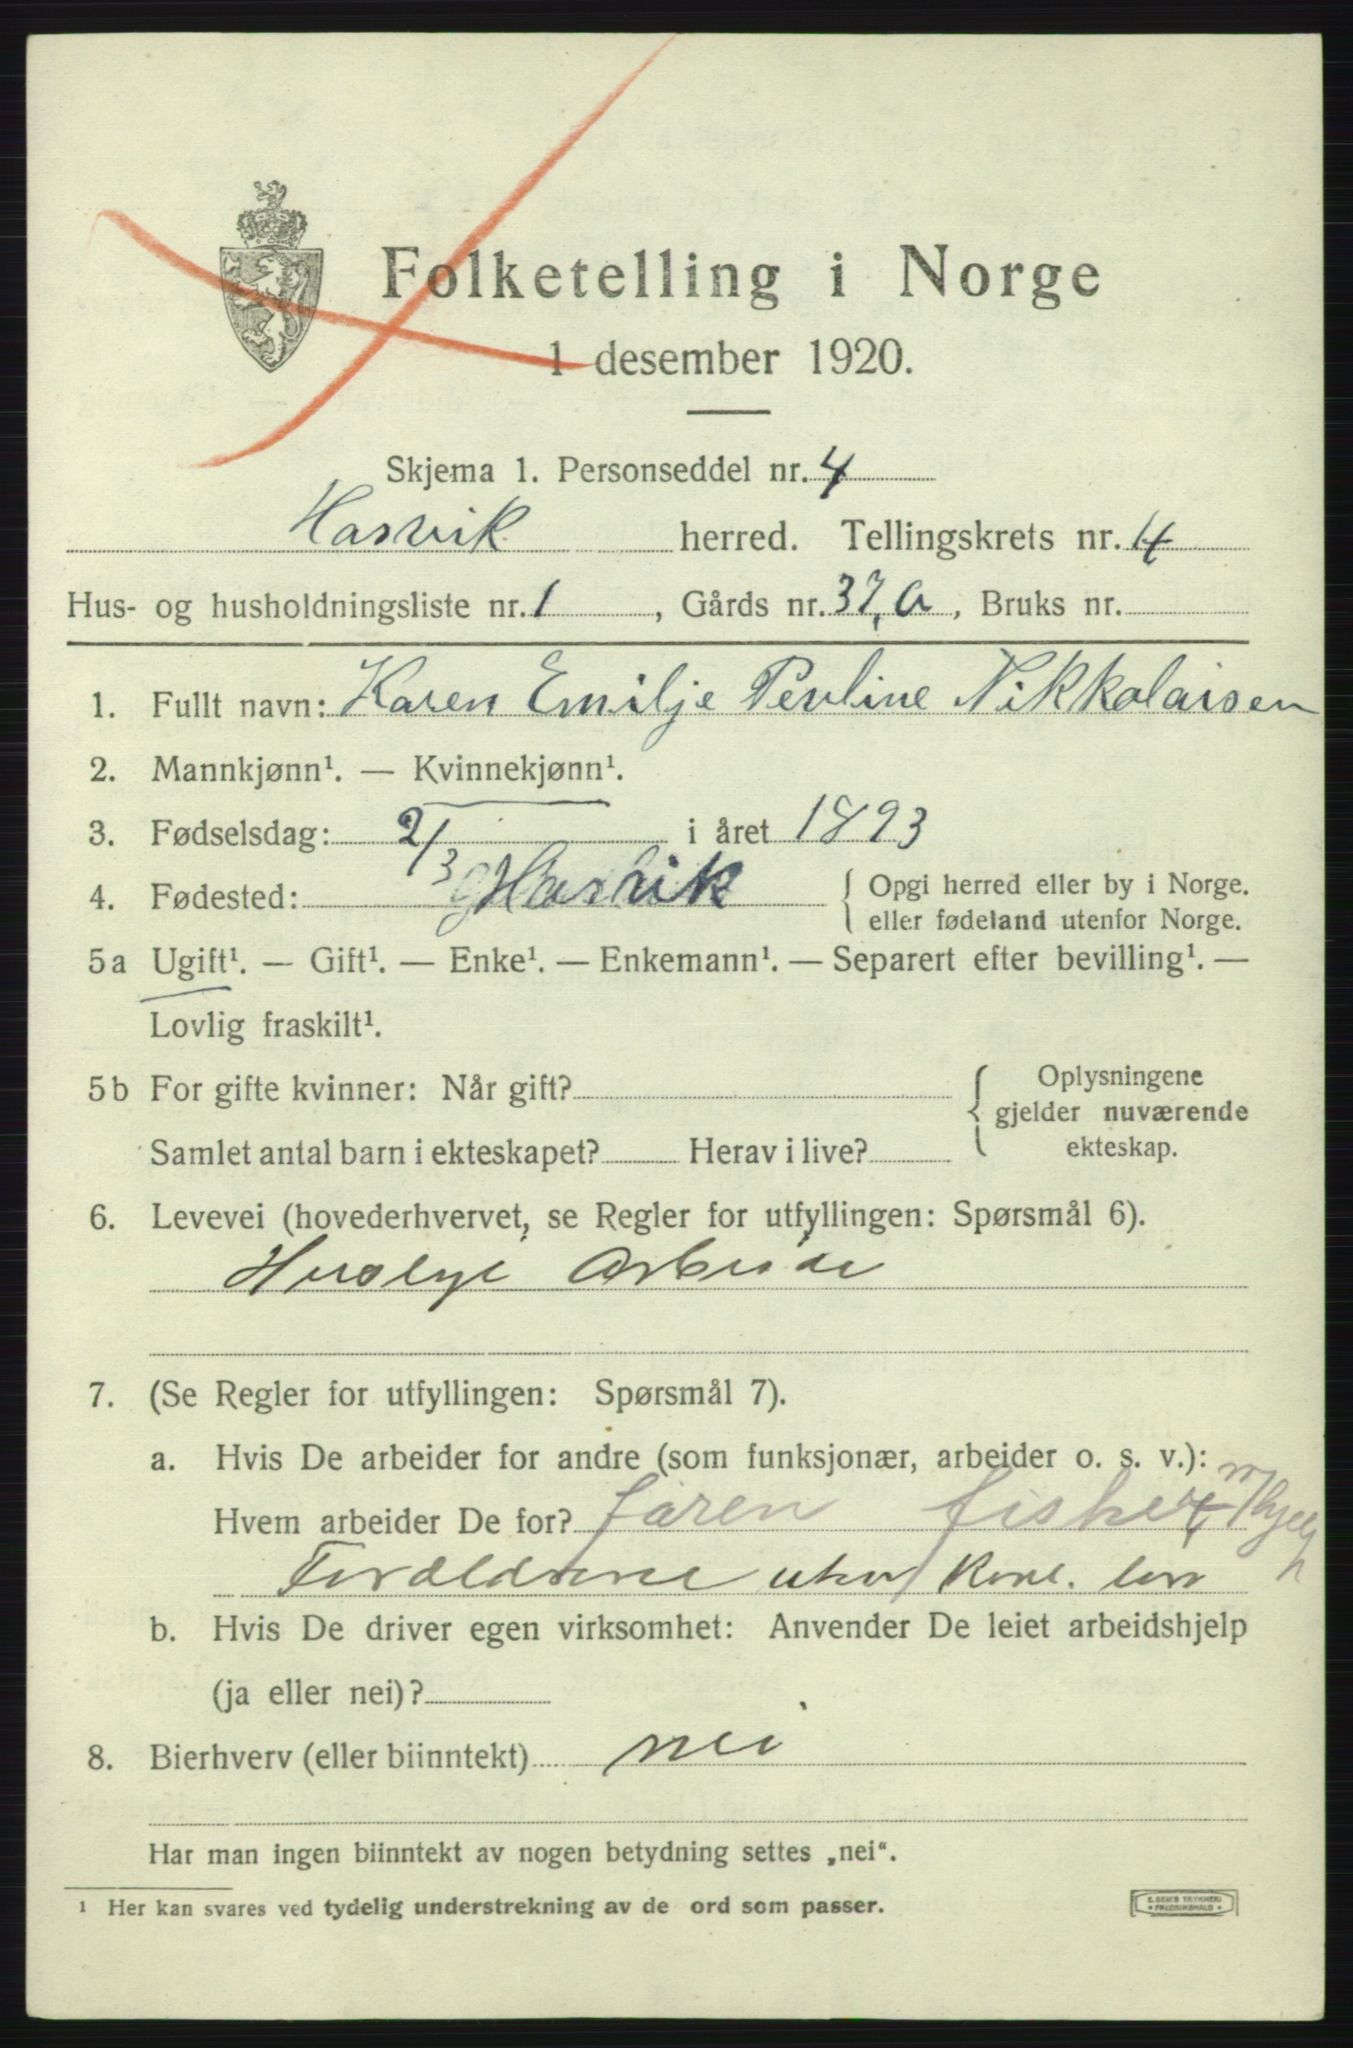 Folketelling i Norge
1 desember 1920.
Skjema 1. Personseddel nr. 4
Hasvik herred. Tellingskrets nr. 4
Hus- og husholdningsliste nr. 1, Gårds nr. 37, a, Bruks nr.
1. Fullt navn: Karen Emilje Pevline Nikkolaisen
2. Mannkjønn¹. — Kvinnekjønn¹.
3. Fødselsdag: 2/3 i året 1893
4. Fødested: Hasvik { Opgi herred eller by i Norge.
eller fødeland utenfor Norge.
5a Ugift¹. — Gift¹. — Enke¹. — Enkemann¹. — Separert efter bevilling¹. —
Lovlig fraskilt¹.
5b For gifte kvinner: Når gift? { Oplysningene
gjelder nuværende
Samlet antal barn i ekteskapet? Herav i live? ekteskap.
6. Levevei (hovederhvervet, se Regler for utfyllingen: Spørsmål 6).
Huslye Arbeide
7. (Se Regler for utfyllingen: Spørsmål 7).
a. Hvis De arbeider for andre (som funksjonær, arbeider o. s. v.):
Hvem arbeider De for? faren fisker m/hjelp
Forældrene uten kont. løn
b. Hvis De driver egen virksomhet: Anvender De leiet arbeidshjelp
(ja eller nei)?
8. Bierhverv (eller biinntekt) nei
Har man ingen biinntekt av nogen betydning settes „nei“.
¹ Her kan svares ved tydelig understrekning av de ord som passer.
E. SEM'S TRYKKERI
FREDRIKSHALD